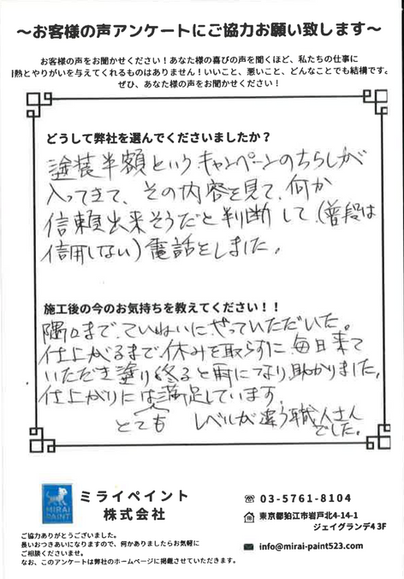 ～お客様の声アンケートにご協力お願い致します～
お客様の声をお聞かせください！あなた様の喜びの声を聞くほど、私たちの仕事に
熱とやりがいを与えてくれるものはありません！いいこと、悪いこと、どんなことでも結構です。
ぜひ、あなた様の声をお聞かせください！
どうして弊社を選んでくださいましたか？
塗装半額というキャンペーンのちらしが
入ってきて、その内容を見て、何か
信頼出来そうだと判断して、(普段は
信用しない)電話をしました。
施工後の今のお気持ちを教えてください！！
隅々まで、ていねいにやっていただいた。
仕上がるまで休みを取らずに毎日来て
いただき塗り終ると雨になり助かりました。
仕上がりにはとても満足しています。
レベルが違う職人さん
でした。
MIRAI
PAINT
ミライペイント
株式会社
03-5761-8104
東京都狛江市岩戸北4-14-1
ジェイグランデ43F
info@mirai-paint523.com
ご協力ありがとうございました。
長いおつきあいになりますので、何かありましたらお気軽に
ご相談くださいませ。
なお、このアンケートは弊社のホームページに掲載させていただきます。